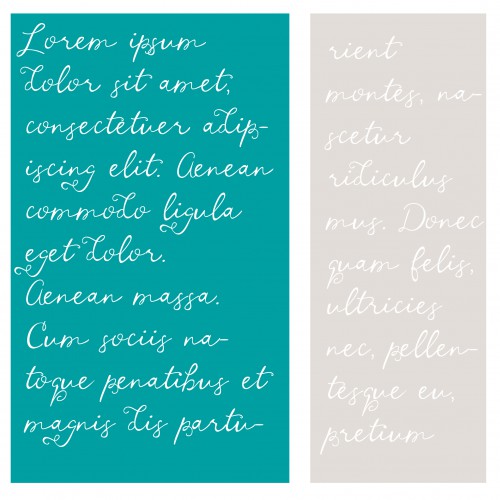 Lorem ipsum
dolor sit amet,
consectetuer adip-
iscing elit. Aenean
commodo ligula
eget dolor.
Aenean massa.
Cum sociis na-
toque penatibus et
magnis dis partu-
rient
montes, na-
scetur
ridiculus
mus. Donec
quam felis,
ultricies
nec, pellen-
tesque eu,
pretium